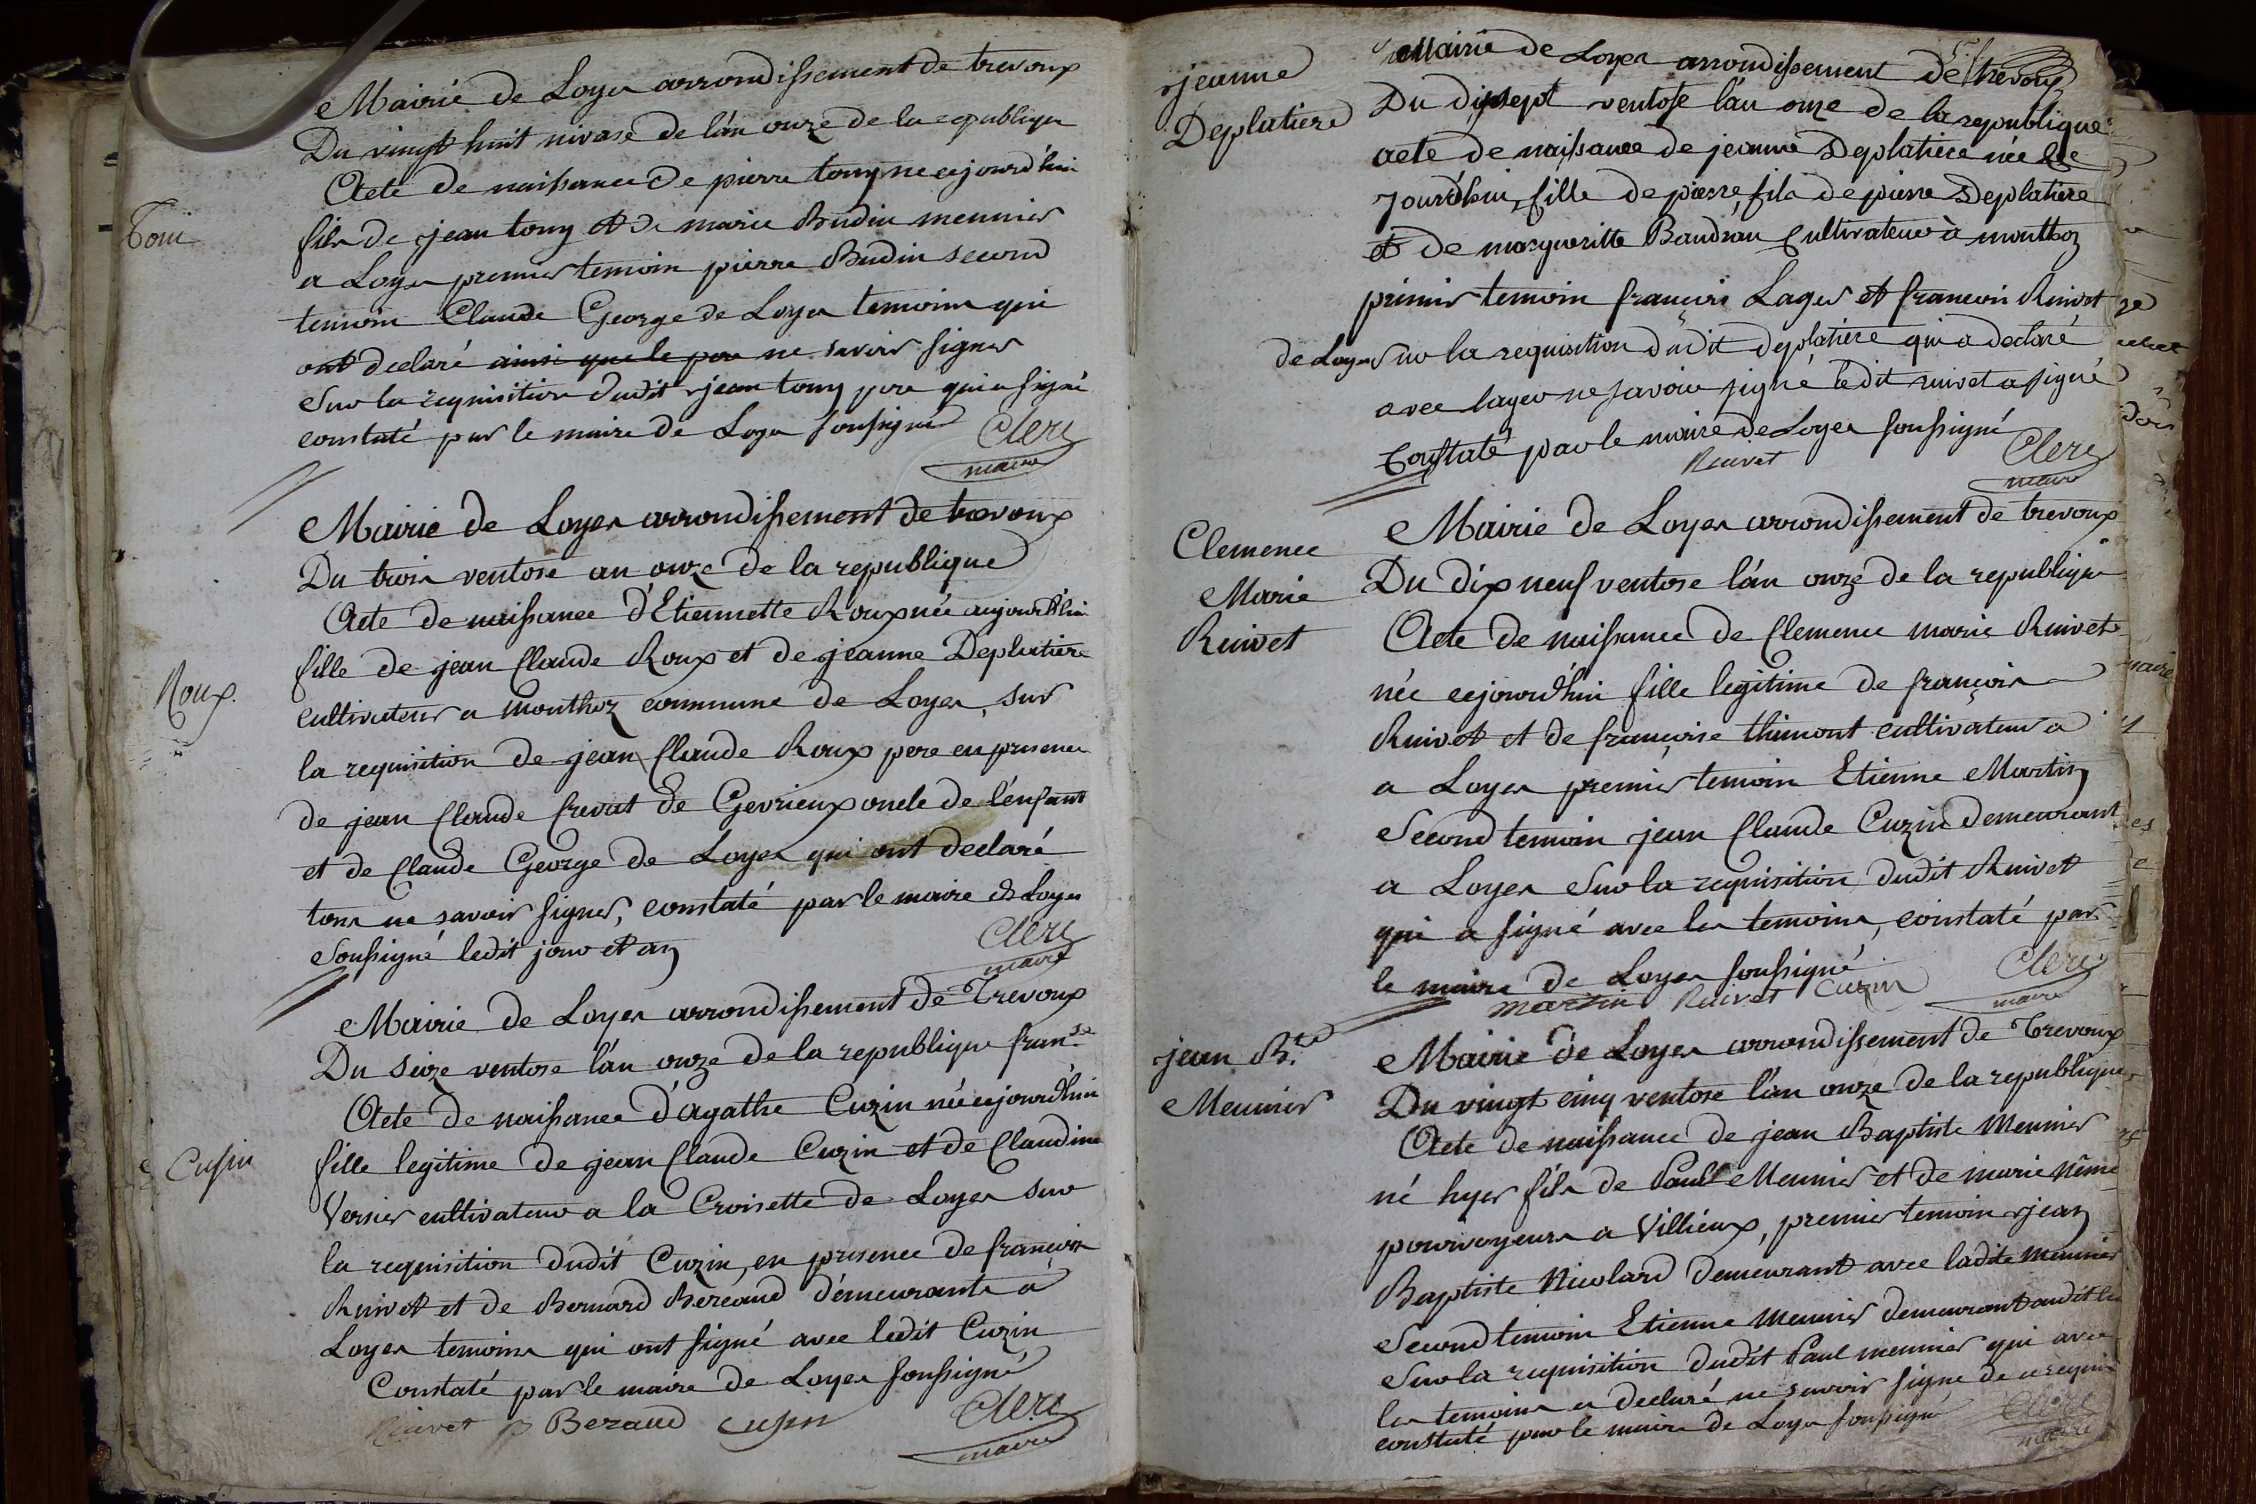 Mairie de Loyes arrondissement de trevoux
Du vingt huit nivose de l'an onze de la republique
Acte de naissance de pierre tony ne cejourd'hui
Toni
fils de jean tony et de marie Budin meunier
a Loyes premier temoin pierre Budin second
temoin Claude George de Loyes temoins qui
ont declaré ainsi que le pere ne savoir signer
Sur la requisition dudit jean tony pere qui a signé
constaté par le maire de Loyes soussigné
Clerc
maire
Mairie de Loyes arrondissement de trevoux
Du trois ventose an onze de la republique
Acte de naissance d'Etiennette Roux née aujourd'hui
fille de jean Claude Roux et de jeanne Deplatiere
Roux.
cultivateur a Monthoz commune de Loyes, sur
la requisition de jean Claude Roux pere en presence
de jean Claude Crevat de Gevrieux oncle de l'enfant
et de Claude George de Loyes qui ont declaré
tous ne savoir signer, constaté par le maire de Loyes
Soussigné ledit jour et an
Clerc
maire
Mairie de Loyes arrondissement de Trevoux
Du seize ventose l'an onze de la republique franse
Acte de naissance d'agathe Cuzin née cejourd'hui
Cusin
fille legitime de jean Claude Cuzin et de Claudine
Versier cultivateur a la Croisette de Loyes sur
la requisition dudit Cuzin, en presence de francois
Ruivet et de Bernard Bereaud demeurants a
Loyes temoins qui ont signé avec ledit Cuzin
Constaté par le maire de Loyes soussigné
Ruivet B Beraud cusin
Clerc
maire
Mairie de Loyes arrondissement de trevoux
jeanne
Deplatiere
Du dixsept ventose l'an onze de la republique
acte de naissance de jeanne Deplatiere née ce
jourd'hui, fille de pierre, fils de pierre Deplatiere
et de margueritte Baudran Cultivateur à monthoz
premier temoin françois Lager et francois Ruivet
de Loyes sur la requisition dudit deplatiere qui a declaré
avec lager ne savoir signé ledit ruivet a signé
Constaté par le maire de Loyes soussigné
Ruivet
Clerc
maire
Mairie de Loyes arrondissement de trevoux
Clemence
Marie
Ruivet
Du dix neuf ventose l'an onze de la republique
Acte de naissance de Clemence marie Ruivet
née cejourd'hui fille legitime de françois
Ruivet et de françoise thimont cultivateur a
a Loyes premier temoin Etienne Martin
Second temoin jean Claude Cuzin demeurant
a Loyes Sur la requisition dudit Ruivet
qui a signé avec les temoins, constaté par
le maire de Loyes soussigné
martin Ruivet Cuzin
Clerc
maire
jean Bte
Meunier
Mairie de Loyes arrondissement de Trevoux
Du vingt cinq ventose l'an onze de la republique
Acte de naissance de jean Baptiste Meunier
né hyer fils de Paul Meunier et de marie
pourvoyeurs a Villieux, premier temoin jean
Baptiste Nicolard demeurant avec ladite meunier
Second temoin Etienne Meunier demeurant audit lieu
Sur la requisition dudit Paul meunier qui avec
les temoins a declaré ne savoir signe de ce requis
constaté par le maire de Loyes soussigné
Clerc
maire